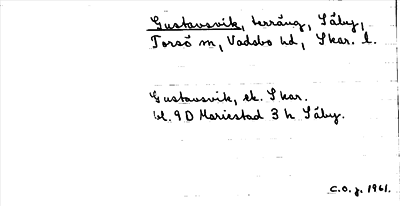 Gustavsvik, terräng, Säby,
Torsö sn, Vadsbo hd, Skar. l.
Gustavsvik, ek. Skar.
bl. 9D Mariestad 3 h Säby.
C.O.g. 1961.